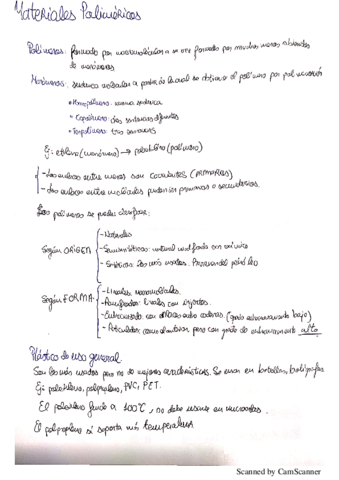 Materiales Poliméricos
Polímeros: formado por macromoléculas a se vez formado por muchas meros
de monómeros
Monómeros: molécula a partir de la cual se obtiene el polímero por
• Homopolímero: misma
• Copolímero: dos diferentes
• Terpolímero: tres
Ej: etileno (monómero) → polietileno (polímero)
- Los enlaces entre meros son covalentes (PRIMARIOS)
- Los enlaces entre moléculas pueden ser primarios o secundarios.
Los polímeros se pueden clasificar:
Según ORIGEN
- Naturales
- Semisintéticos: natural modificado con
- Sintéticos: Los más usados. Provenientes petróleo
Según FORMA
- Lineales
- Ramificados: Lineales con injertos.
- Entrecruzado: con enlaces entre cadenas. (grado entrecruzamiento bajo)
- Reticulados: como el anterior pero con grado de entrecruzamiento alto
Plásticos de uso general
Son los más usados pero no de mejores características. Se usan en botellas, bolígrafos
Ej: polietileno, polipropileno, PVC, PET.
El polietileno funde a 100°C, no debe usarse en microondas.
El polipropileno sí soporta más temperatura
Scanned by CamScanner